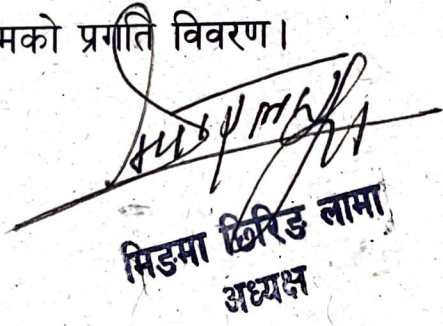 मको प्रगति विवरण।
मिङमा छिरिङ लामा
अध्यक्ष